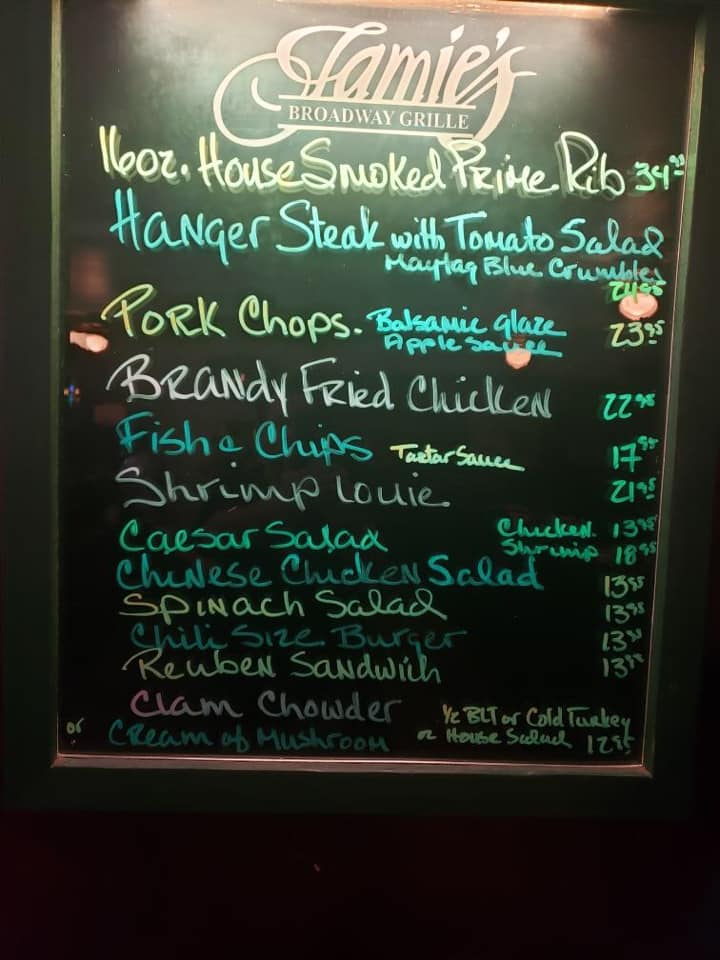 Jamie's
BROADWAY GRILLE
16oz. House Smoked Prime Rib 34
Hanger Steak with Tomato Salad
Maytag Blue Crumbles
24.95
Pork Chops. Balsamic glaze 23.95
Apple Sauce
Brandy Fried Chicken 22.95
Fish & Chips Tartar Sauce 17.95
Shrimp Louie 21.95
Caesar Salad Chicken. 13.95
Shrimp 18.95
Chinese Chicken Salad 13.95
Spinach Salad 13.95
Chili Size Burger 13
Reuben Sandwich 13
Clam Chowder 1/2 BLT or Cold Turkey
or Cream of Mushroom or House Salad 12.95